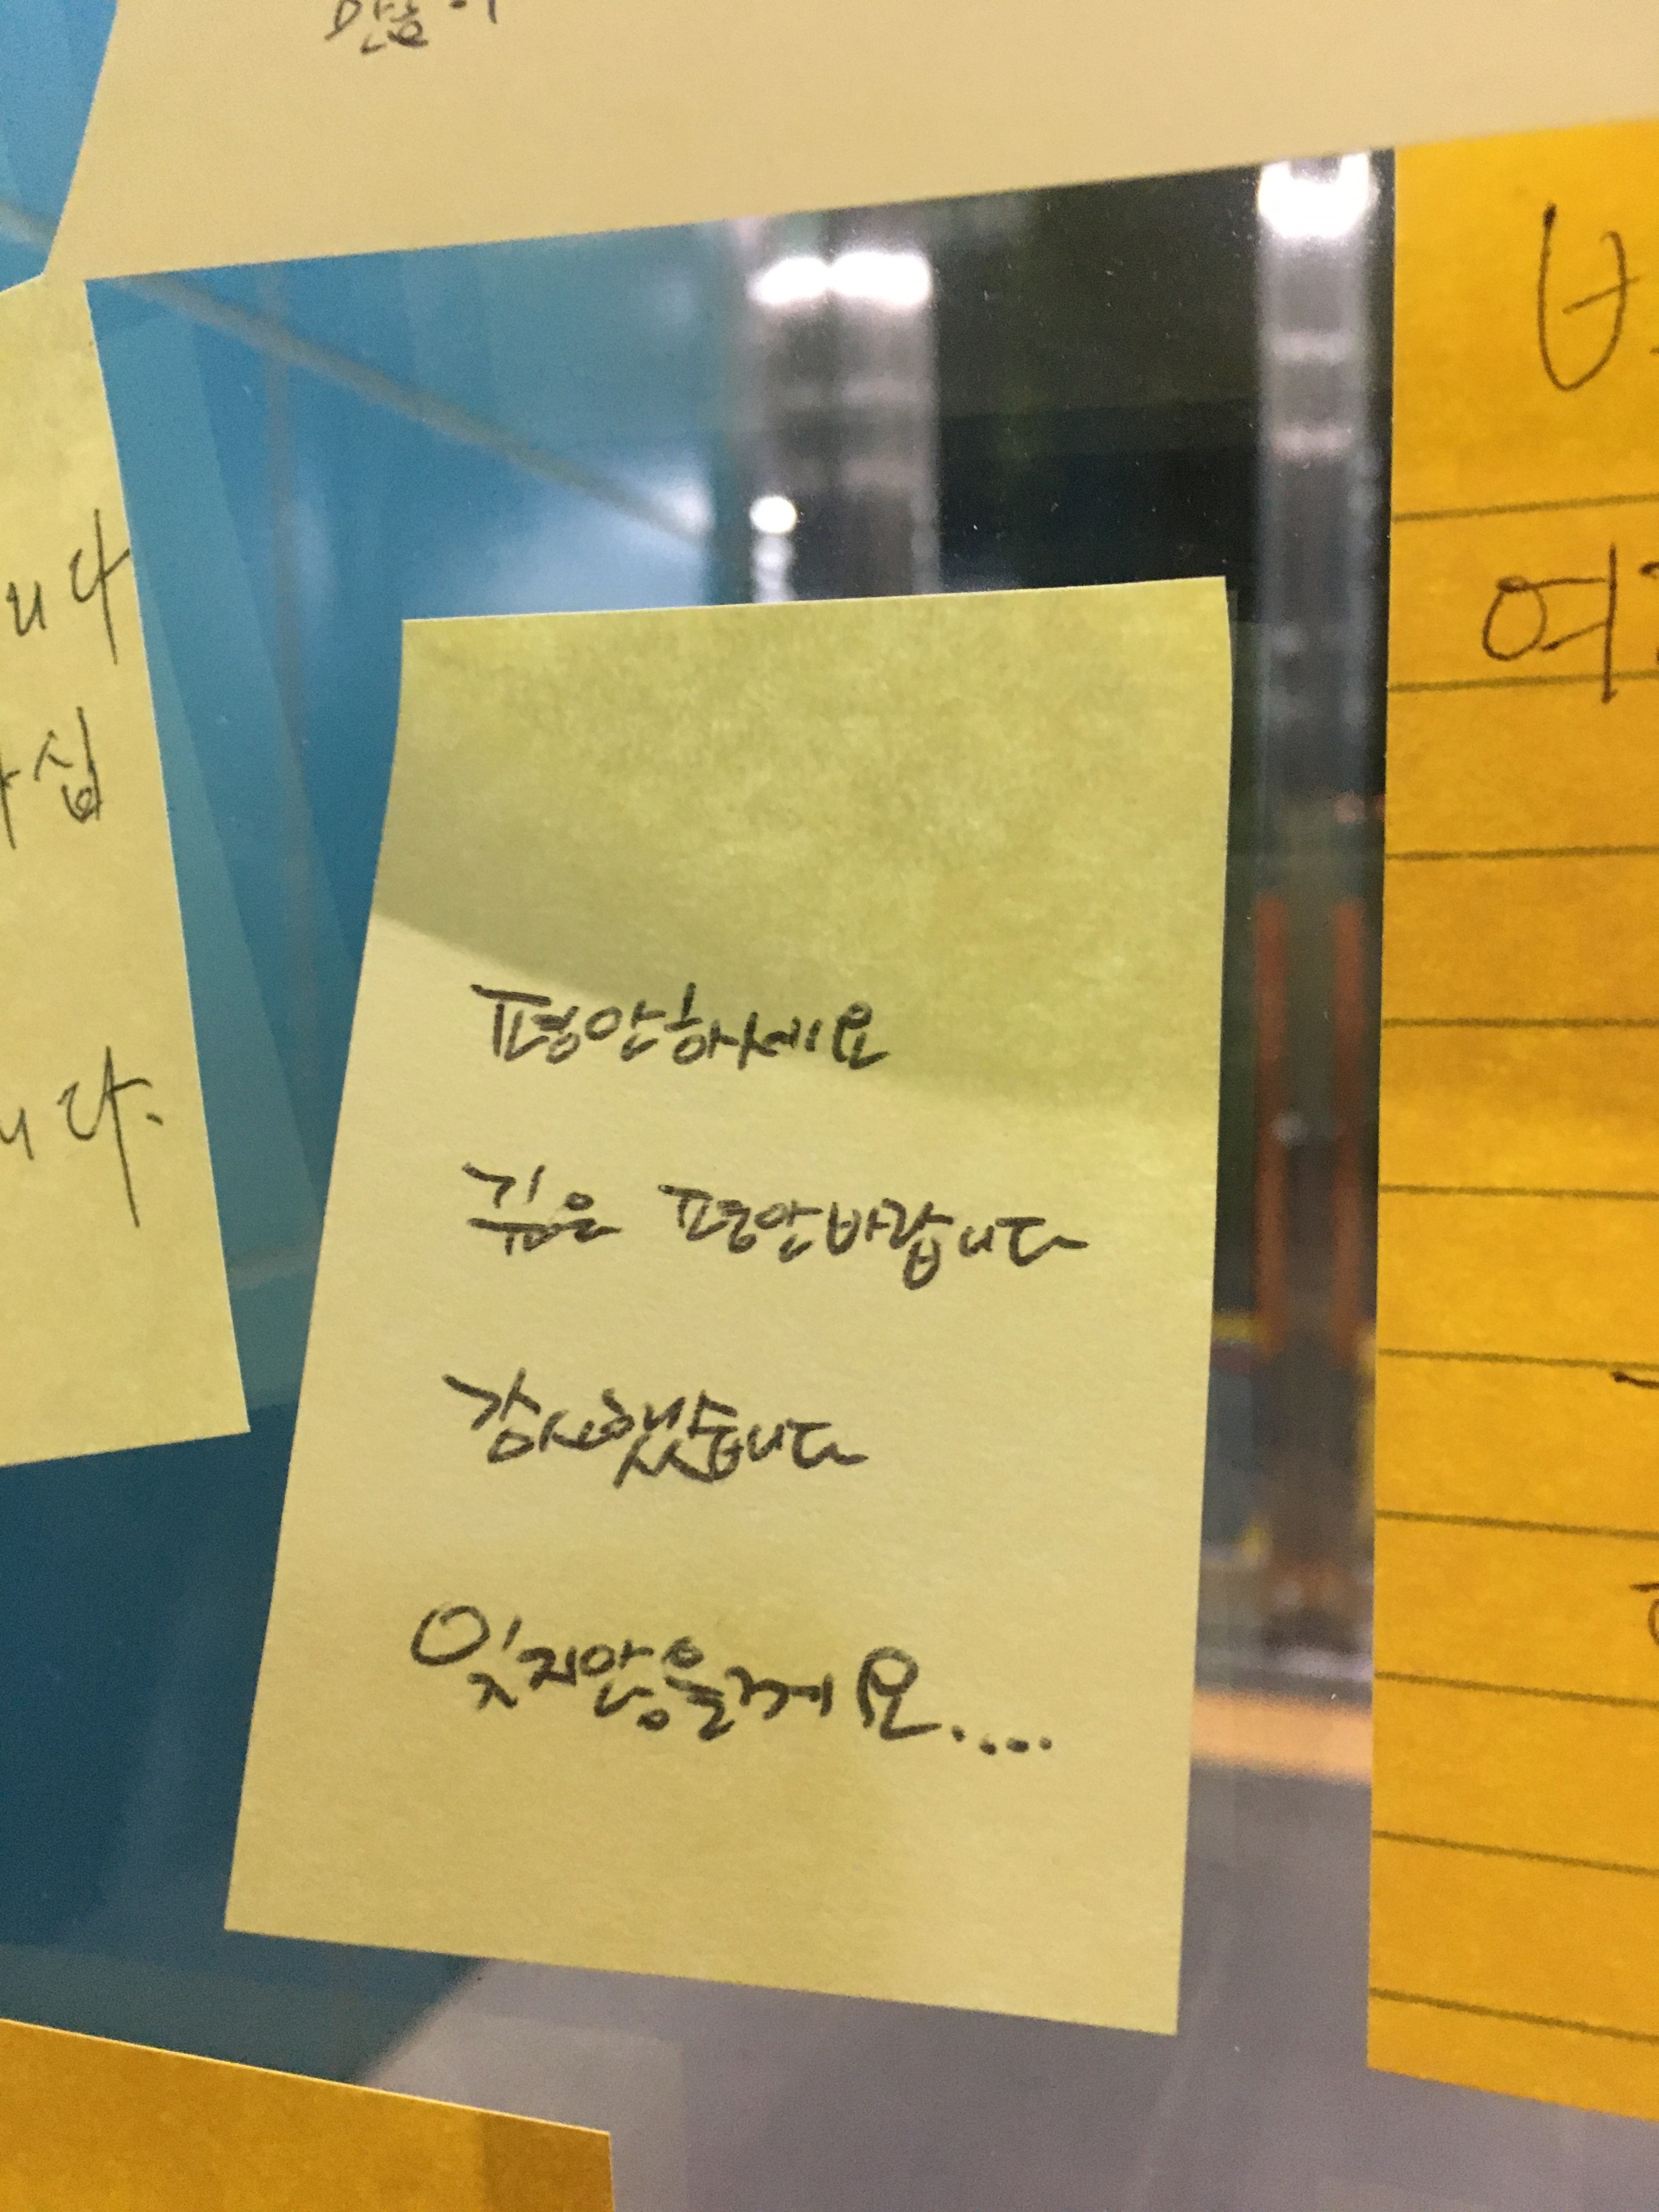 만음
니다
십
니다.
평안하세요
깊은 평안바랍니다
감사했습니다
잊지않을게요....